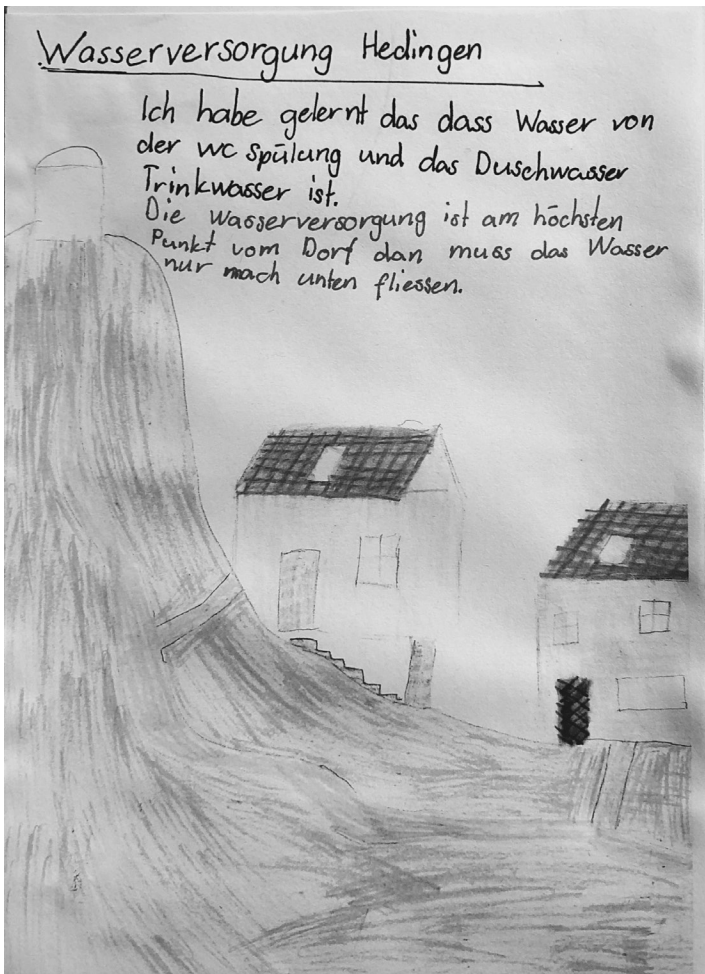 Wasserversorgung Hedingen
Ich habe gelernt das dass Wasser von
der wc spülung und das Duschwasser
Trinkwasser ist.
Die Wasserversorgung ist am höchsten
Punkt vom Dorf dan muss das Wasser
nur nach unten fliessen.